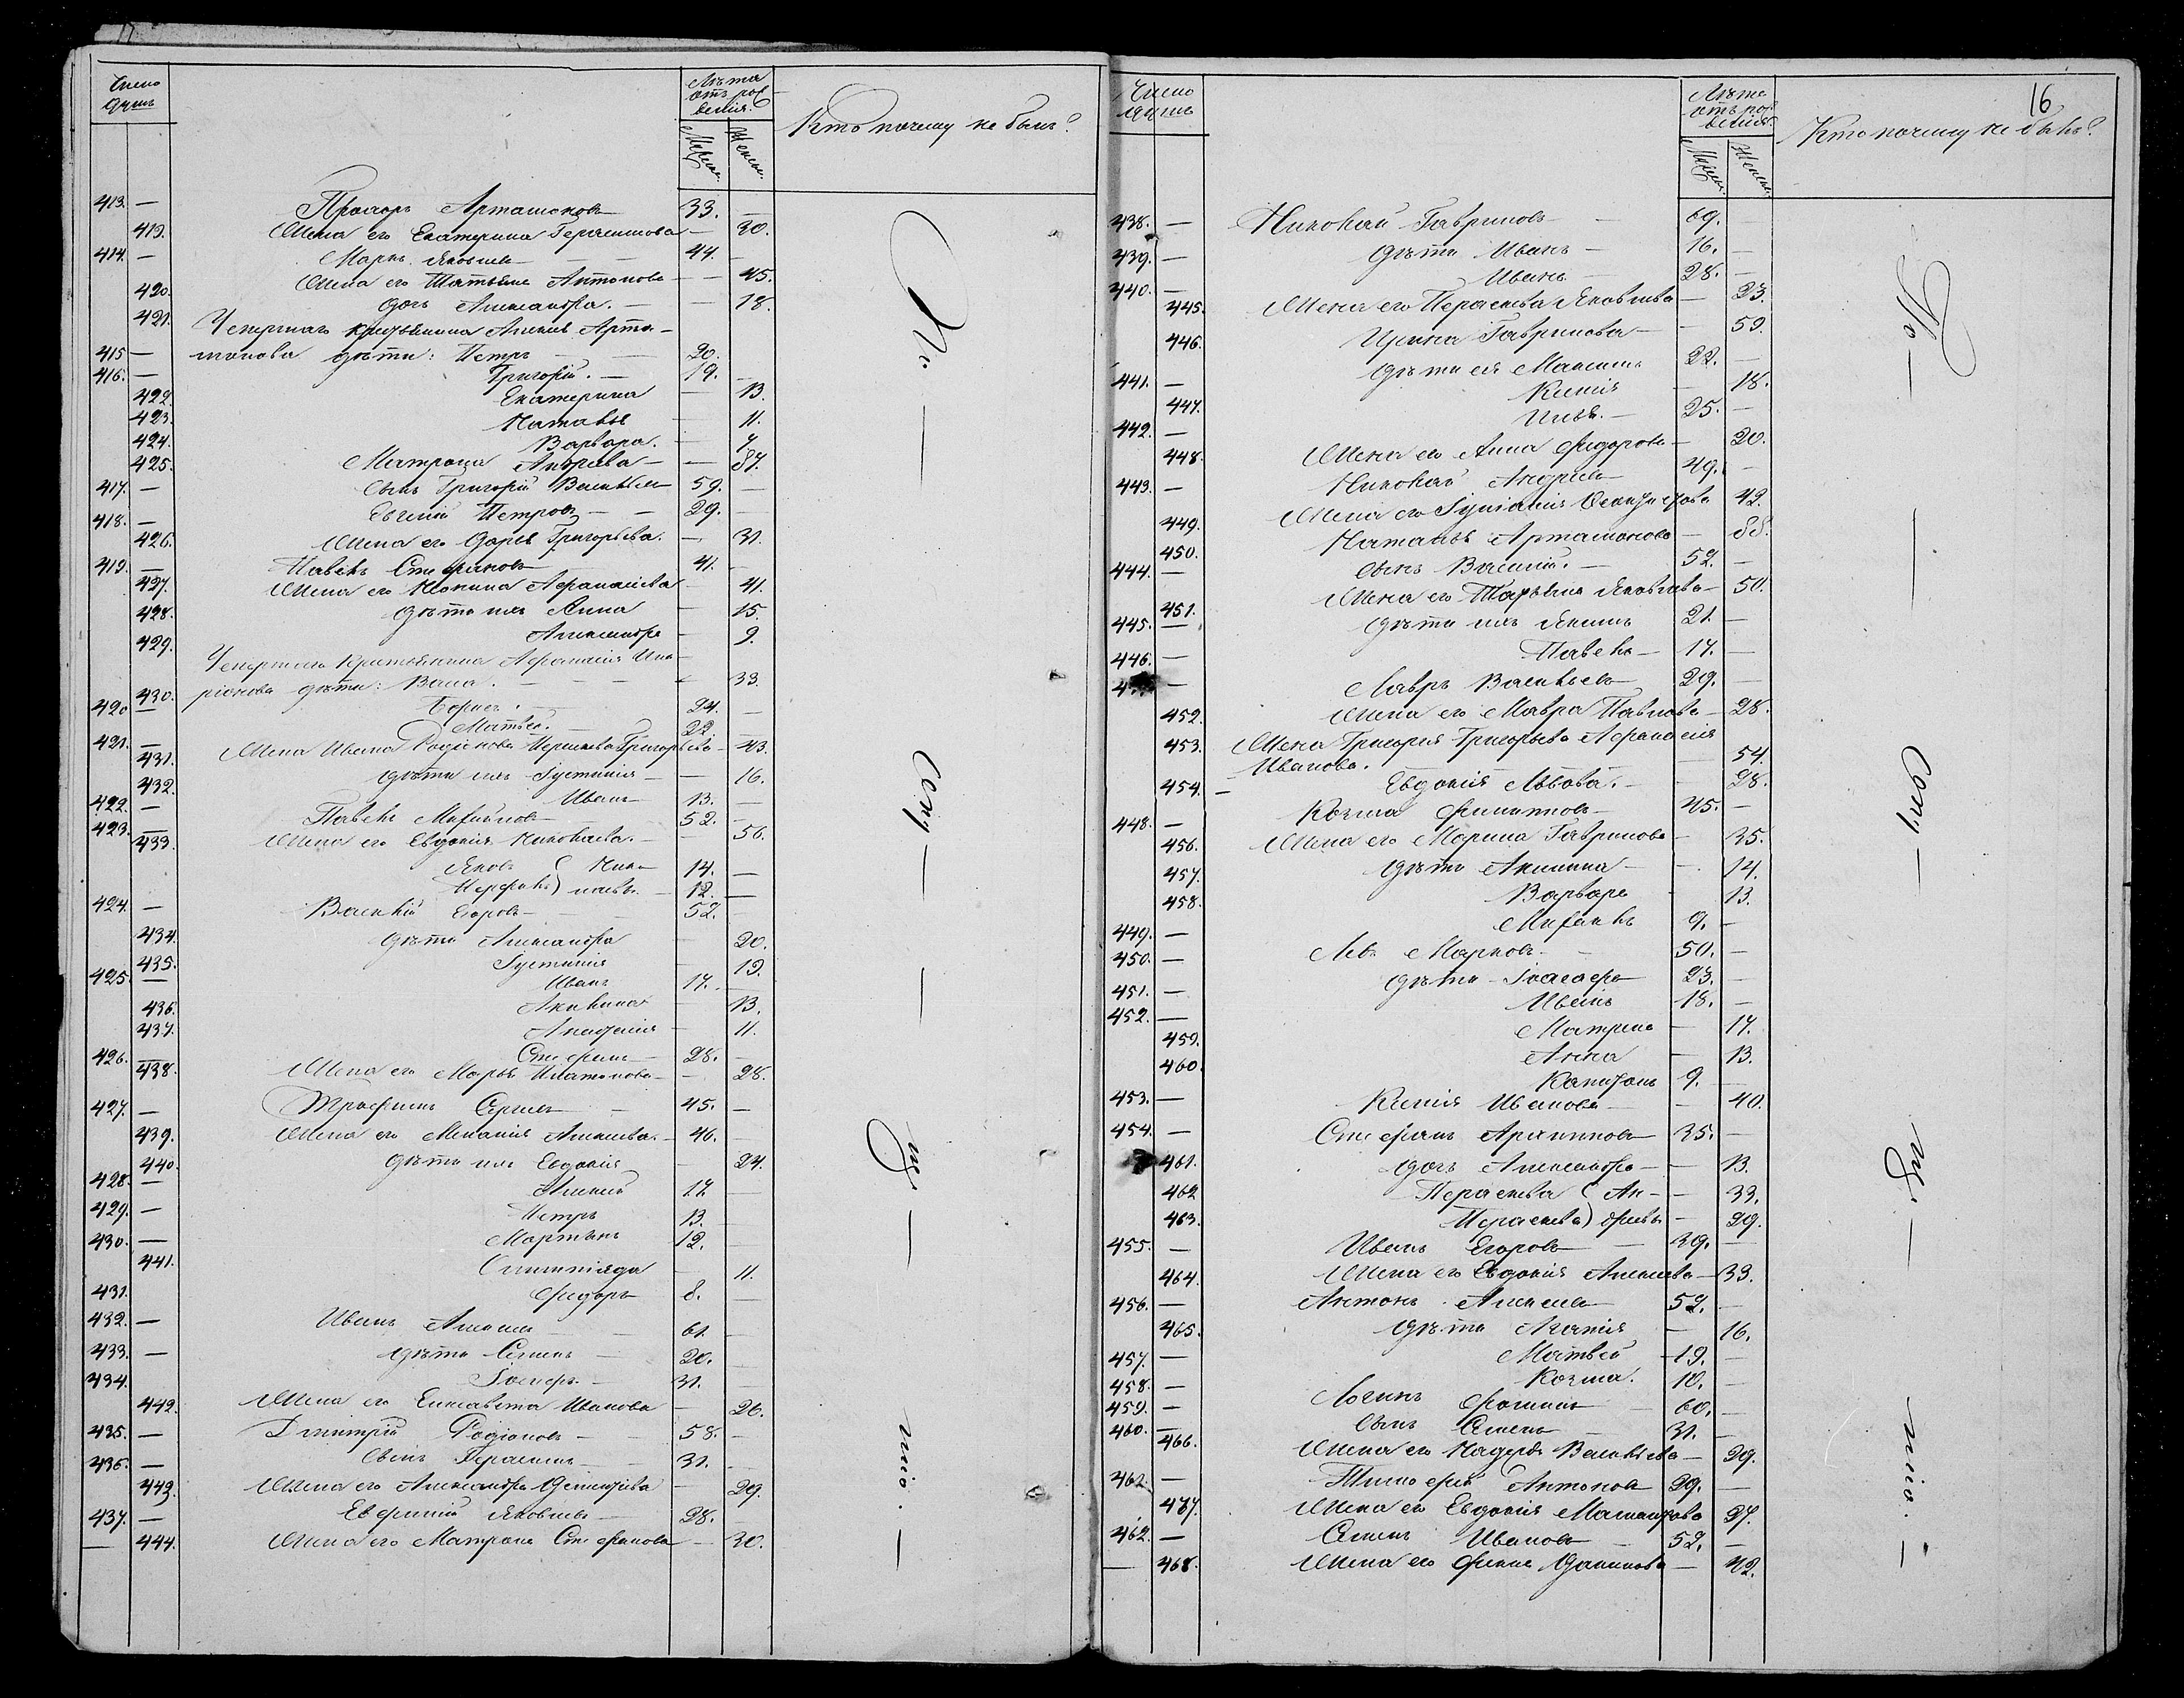 Число душъ
Лѣта отъ рожденія.
Мужск. Женск.
Кто почему не былъ?
413. — Прохоръ Артамоновъ 33. —
419. Жена его Екатерина Герасимова — 30.
414. — Маркъ Яковлевъ — — 44. —
420. Жена его Татьяна Антонова — — 45.
421. дочь Александра. — — 18.
Умершаго крестьянина Алексія Арта-
415 — монова дѣти: Петръ — — 20.
416. — Григорій. — 19. —
422. Екатерина — 13.
423. Наталья — 11.
424. Варвара. — 7.
425. Матрона Андреева — — 87.
417. — Сынъ Григорій Васильевъ 59. —
418. — Евгеній Петровъ — — 29. —
426. Жена его Дарья Григорьева. — 31.
419. — Павелъ Стефановъ 41. —
427. Жена его Неонила Афанасіева — 41.
428. дѣти ихъ Анна — 15.
429. Александра — 9.
Умершаго крестьянина Афанасія Ила-
430. ріонова дѣти: Васса. — — — 33.
420 — Борисъ. — 24. —
421. — Матвей. — 22. —
431. Жена Ивана Родіонова Параскева Григорьева — 43.
432. дѣти ихъ Іустинія — — 16.
422. — Иванъ 13. —
423. — Павелъ Михайловъ — 52. —
433. Жена его Евдокія Николаева. — — 56.
Яковъ ( Нико- 14. —
Перфилъ ) лаевы. — 12. —
424. — Василій Егоровъ — — 52. —
434. дѣти Александра — 20.
435. Іустинія — 19.
425. — Иванъ 17. —
436. Акилина — 13.
437. Анастасія — 11.
426. — Стефанъ — 28. —
438. Жена его Марья Платонова — — 28.
427. — Трофимъ Сергеевъ — 45. —
439. Жена его Меланія Алексеева. — 46. —
440. дѣти ихъ Евдокія — 24.
428. — Алексей 17. —
429. — Петръ 13. —
430. — Мартынъ 12. —
441. Олимпіада — 11.
431. Федоръ 8. —
432. — Иванъ Алексеевъ — — 61. —
433. — дѣти Семенъ — 20. —
434. Іосифъ. — 31. —
442. Жена его Елисавета Иванова — 26.
435. — Дмитрій Родіоновъ — — 58. —
436. — Сынъ Герасимъ — 31. —
443. Жена его Александра Дементіева — 29.
437. — Евфимій Яковлевъ — 28. —
— 444. Жена его Матрона Стефанова — 30.
По. — — Сему — — му. — тію. —
16
Число душъ
Лѣта отъ рожденія
Мужск. Женск.
Кто почему не былъ?
438. — Николай Гавриловъ — — 69. —
439. — дѣти Иванъ — 16. —
440. — Иванъ — 28. —
445. Жена его Параскева Яковлева — 23.
446. Ирина Гаврилова — — 59.
441. — дѣти ея Максимъ 22. —
447. Ксенія — 18.
442. — Илья. — 25. —
448. Жена его Анна Федорова — 20.
443. — Николай Андреевъ 49. —
449. Жена его Іуліанія 42.
450. Наталья Артамонова — 88.
444. — Сынъ Василій. — 52. —
451. Жена его Татьяна Яковлева — 50.
445. — дѣти ихъ Якимъ 21. —
446. — Павелъ — 17. —
— Лавръ Васильевъ 29. —
452. Жена его Мавра Павлова — 28.
453. Жена Григорія Григорьева Афанасія
Иванова. — 54.
454. — Евдокія Львова. — 28.
448. — Козма Филиповъ — 45. —
456. Жена его Марина Гаврилова — 35.
457. дѣти Акилина — — 14.
458. Варвара — 13.
449. — Михаилъ 9. —
450. — Левъ Марковъ. — 50. —
451. — дѣти Іоасафъ 23. —
452. — Иванъ — 18. —
459. Матрена — 17.
460. Анна — 13.
453. — Капитонъ 9. —
Ксенія Иванова — — 40.
454. — Стефанъ Архиповъ 35. —
461. дочь Александра — — 13.
462 Параскева ( Ан- — 33.
463. Параскева ) дреевы — 29.
455. — Иванъ Егоровъ — 39. —
464. Жена его Евдокія Алексеева — 33.
456. — Антонъ Алексеевъ 52. —
465. дѣти Агапія — 16.
457. — Матвей 19. —
458. — Козма. 10. —
459. — Логинъ Фоминъ — 60. —
460. — Сынъ Семенъ — 31. —
466. Жена его Надежда Васильева — 29.
461. — Тимофей Антоновъ 29. —
467. Жена его Евдокія 27.
462. — Семенъ Ивановъ — 52. —
— 468. Жена его Фекла Данилова — 42.
По — — Сему — му. — тію. —